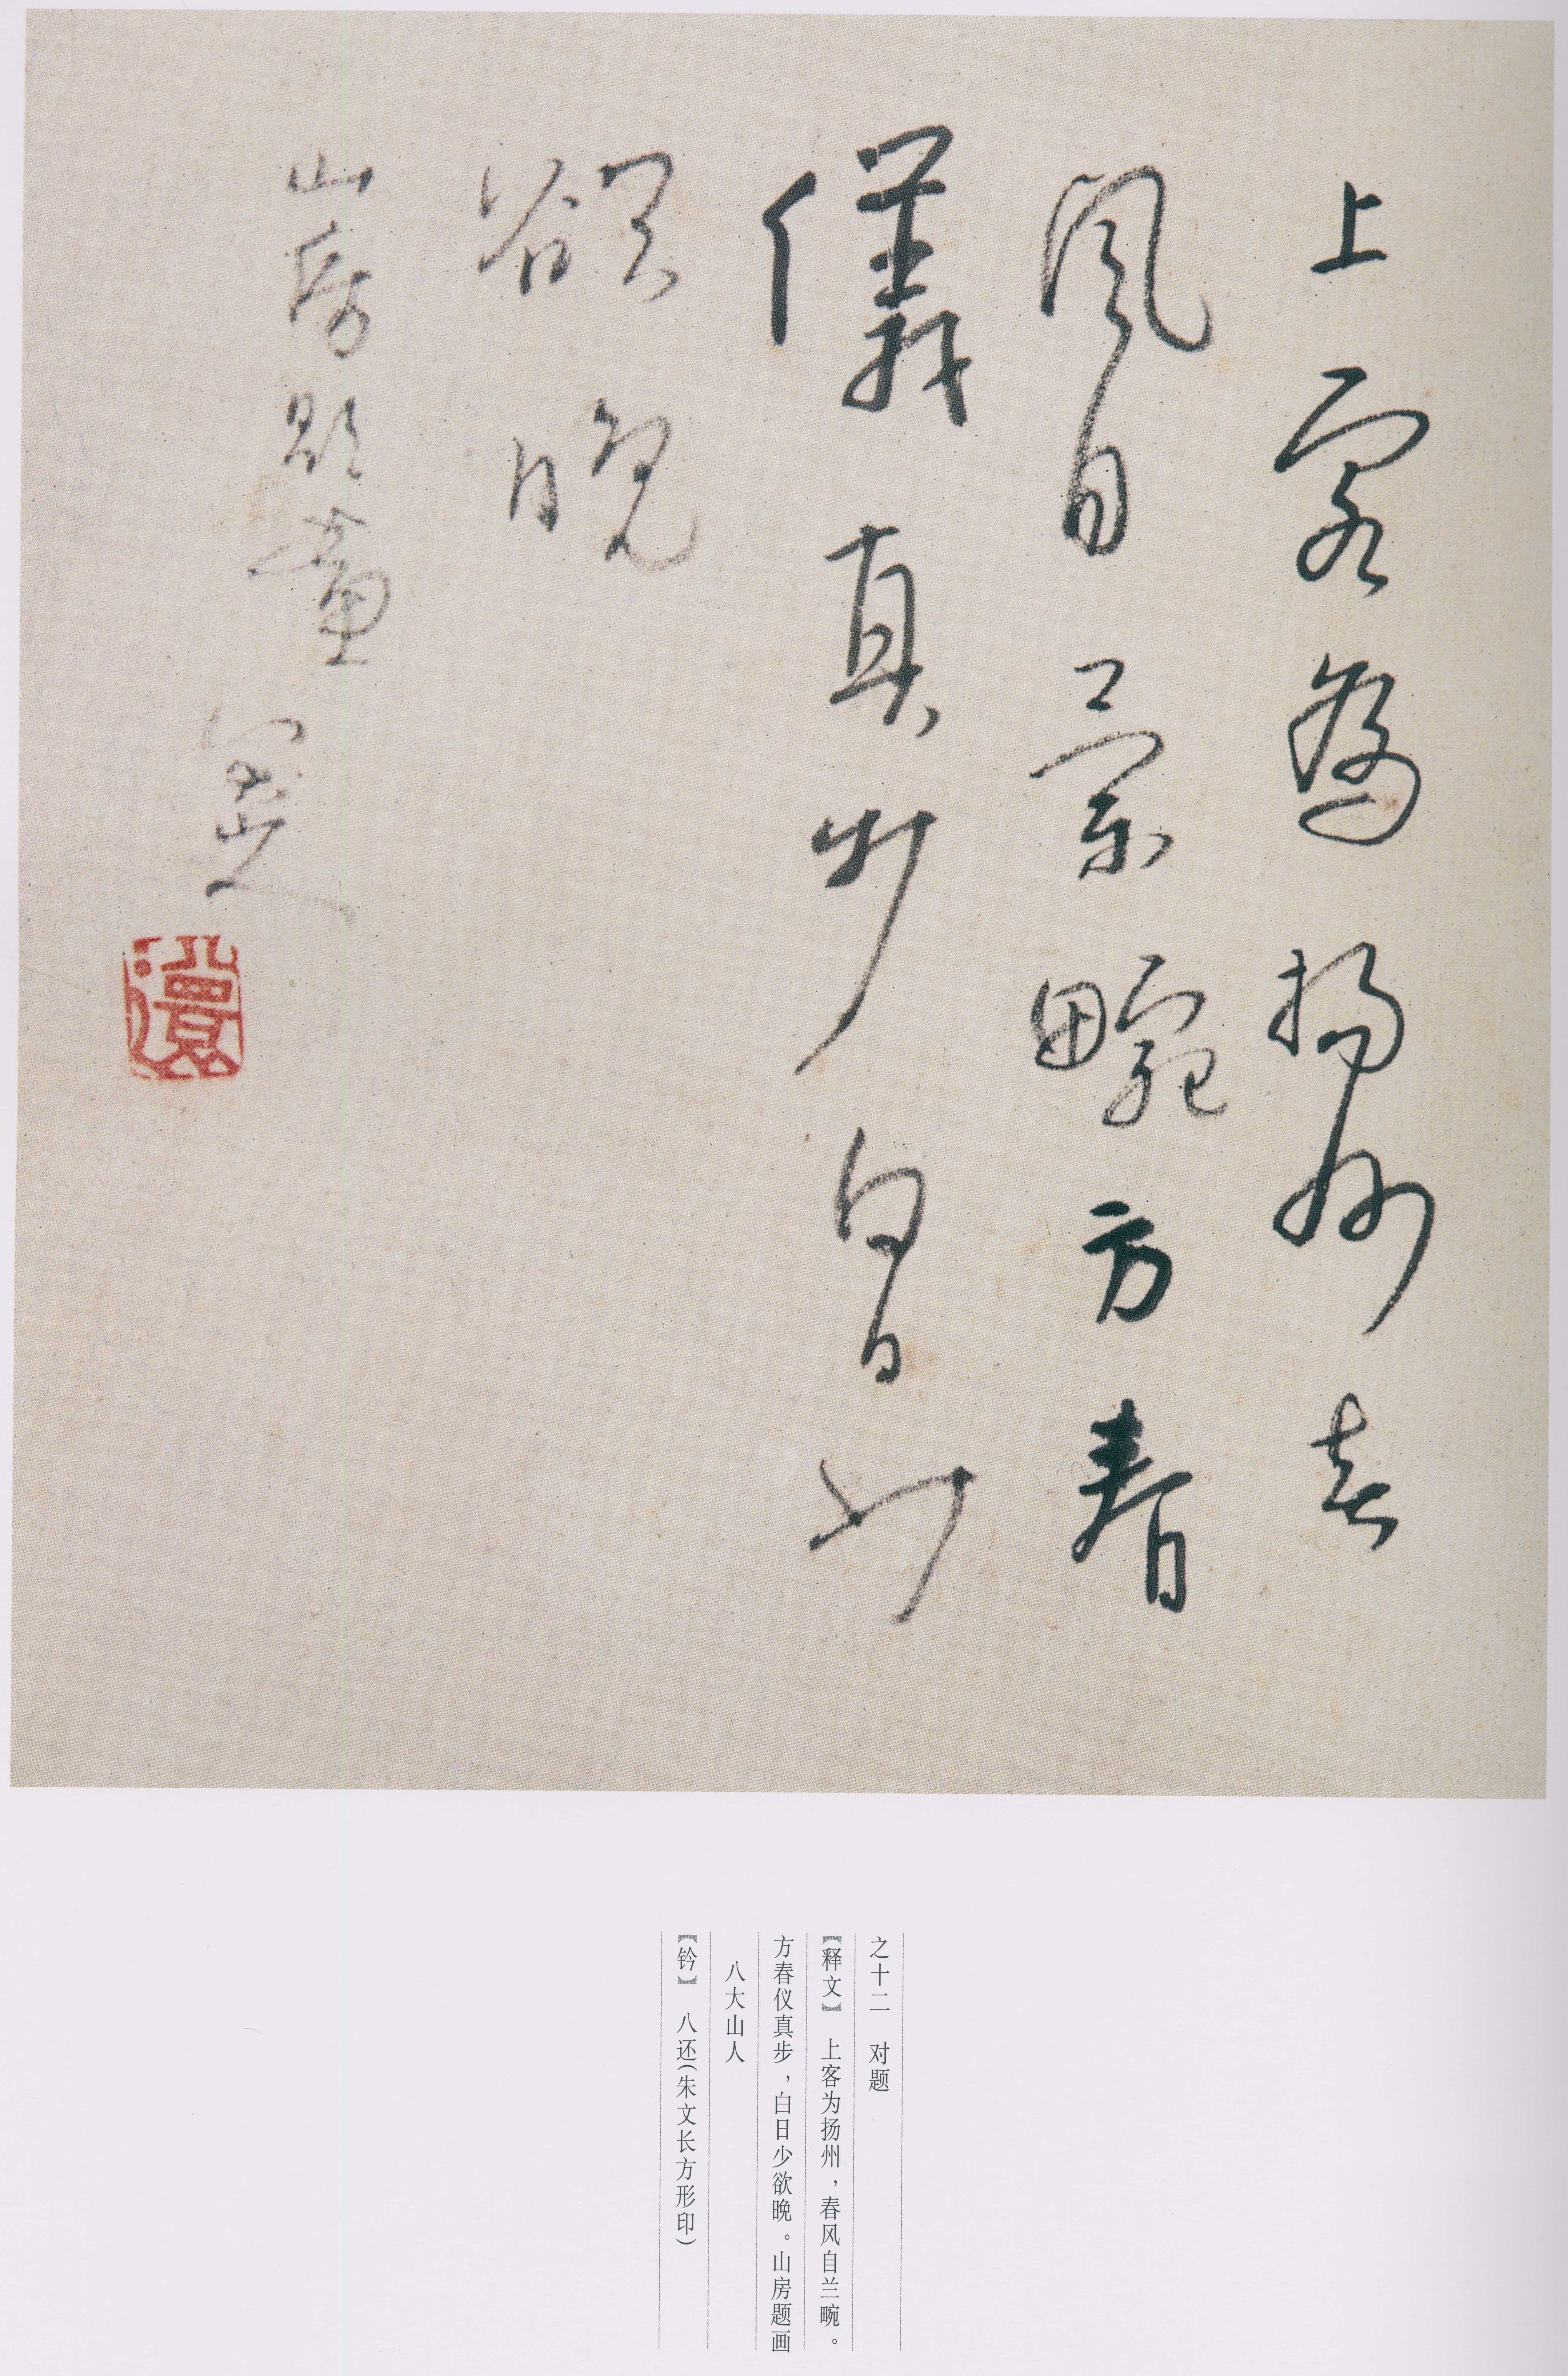 上客為揚州春
風自蘭畹方春
儀真步白日少
欲晚
山房題畫
八大山人
八還
之十二 对题
【释文】 上客为扬州，春风自兰畹。
方春仪真步，白日少欲晚。山房题画
八大山人
【钤】 八还（朱文长方形印）